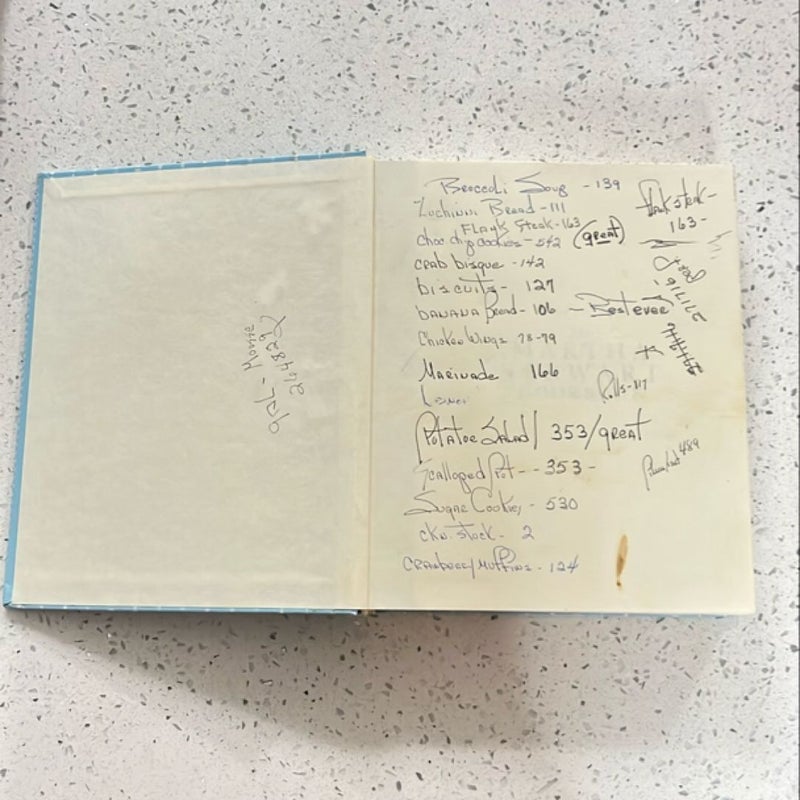 Broccoli Soup - 139
Zuchinni Bread - 111
Flank Steak - 163
choc chip cookies - 542 (great)
crab bisque - 142
biscuits - 127
banana Bread - 106 - Best ever
Chicken Wings 78-79
Marinade 166
Potatoe Salad / 353/great
Scalloped Pot - - 353 -
Sugar Cookies - 530
ckn. stock - 2
cranberry Muffins - 124
flank steak -
163 -
Rolls - 117
489